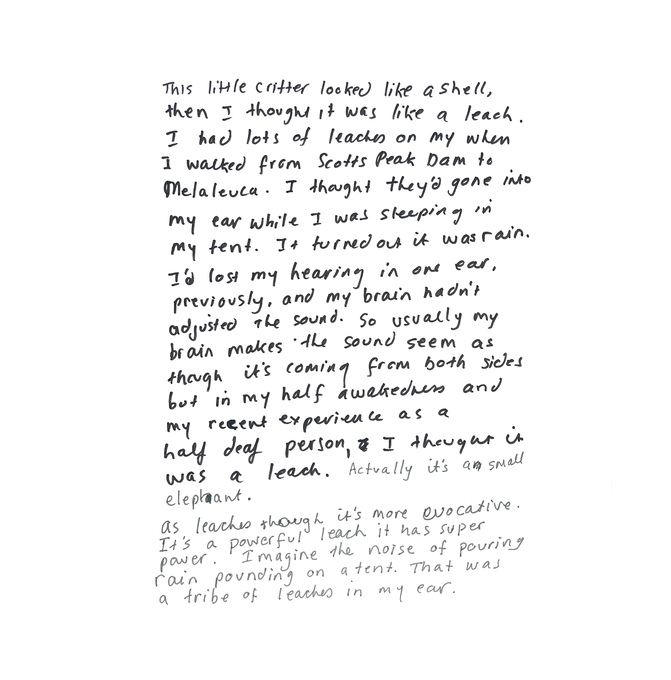 This little critter looked like a shell,
then I thought it was like a leach.
I had lots of leaches on my when
I walked from Scotts Peak Dam to
Melaleuca. I thought they'd gone into
my ear while I was sleeping in
my tent. It turned out it was rain.
I'd lost my hearing in one ear,
previously, and my brain hadn't
adjusted the sound. So usually my
brain makes the sound seem as
though it's coming from both sides
but in my half awakedness and
my recent experience as a
half deaf person, I thought it
was a leach. Actually it's an small
elephant.
as leaches though it's more evocative.
It's a powerful leach it has super
power. Imagine the noise of pouring
rain pounding on a tent. That was
a tribe of leaches in my ear.